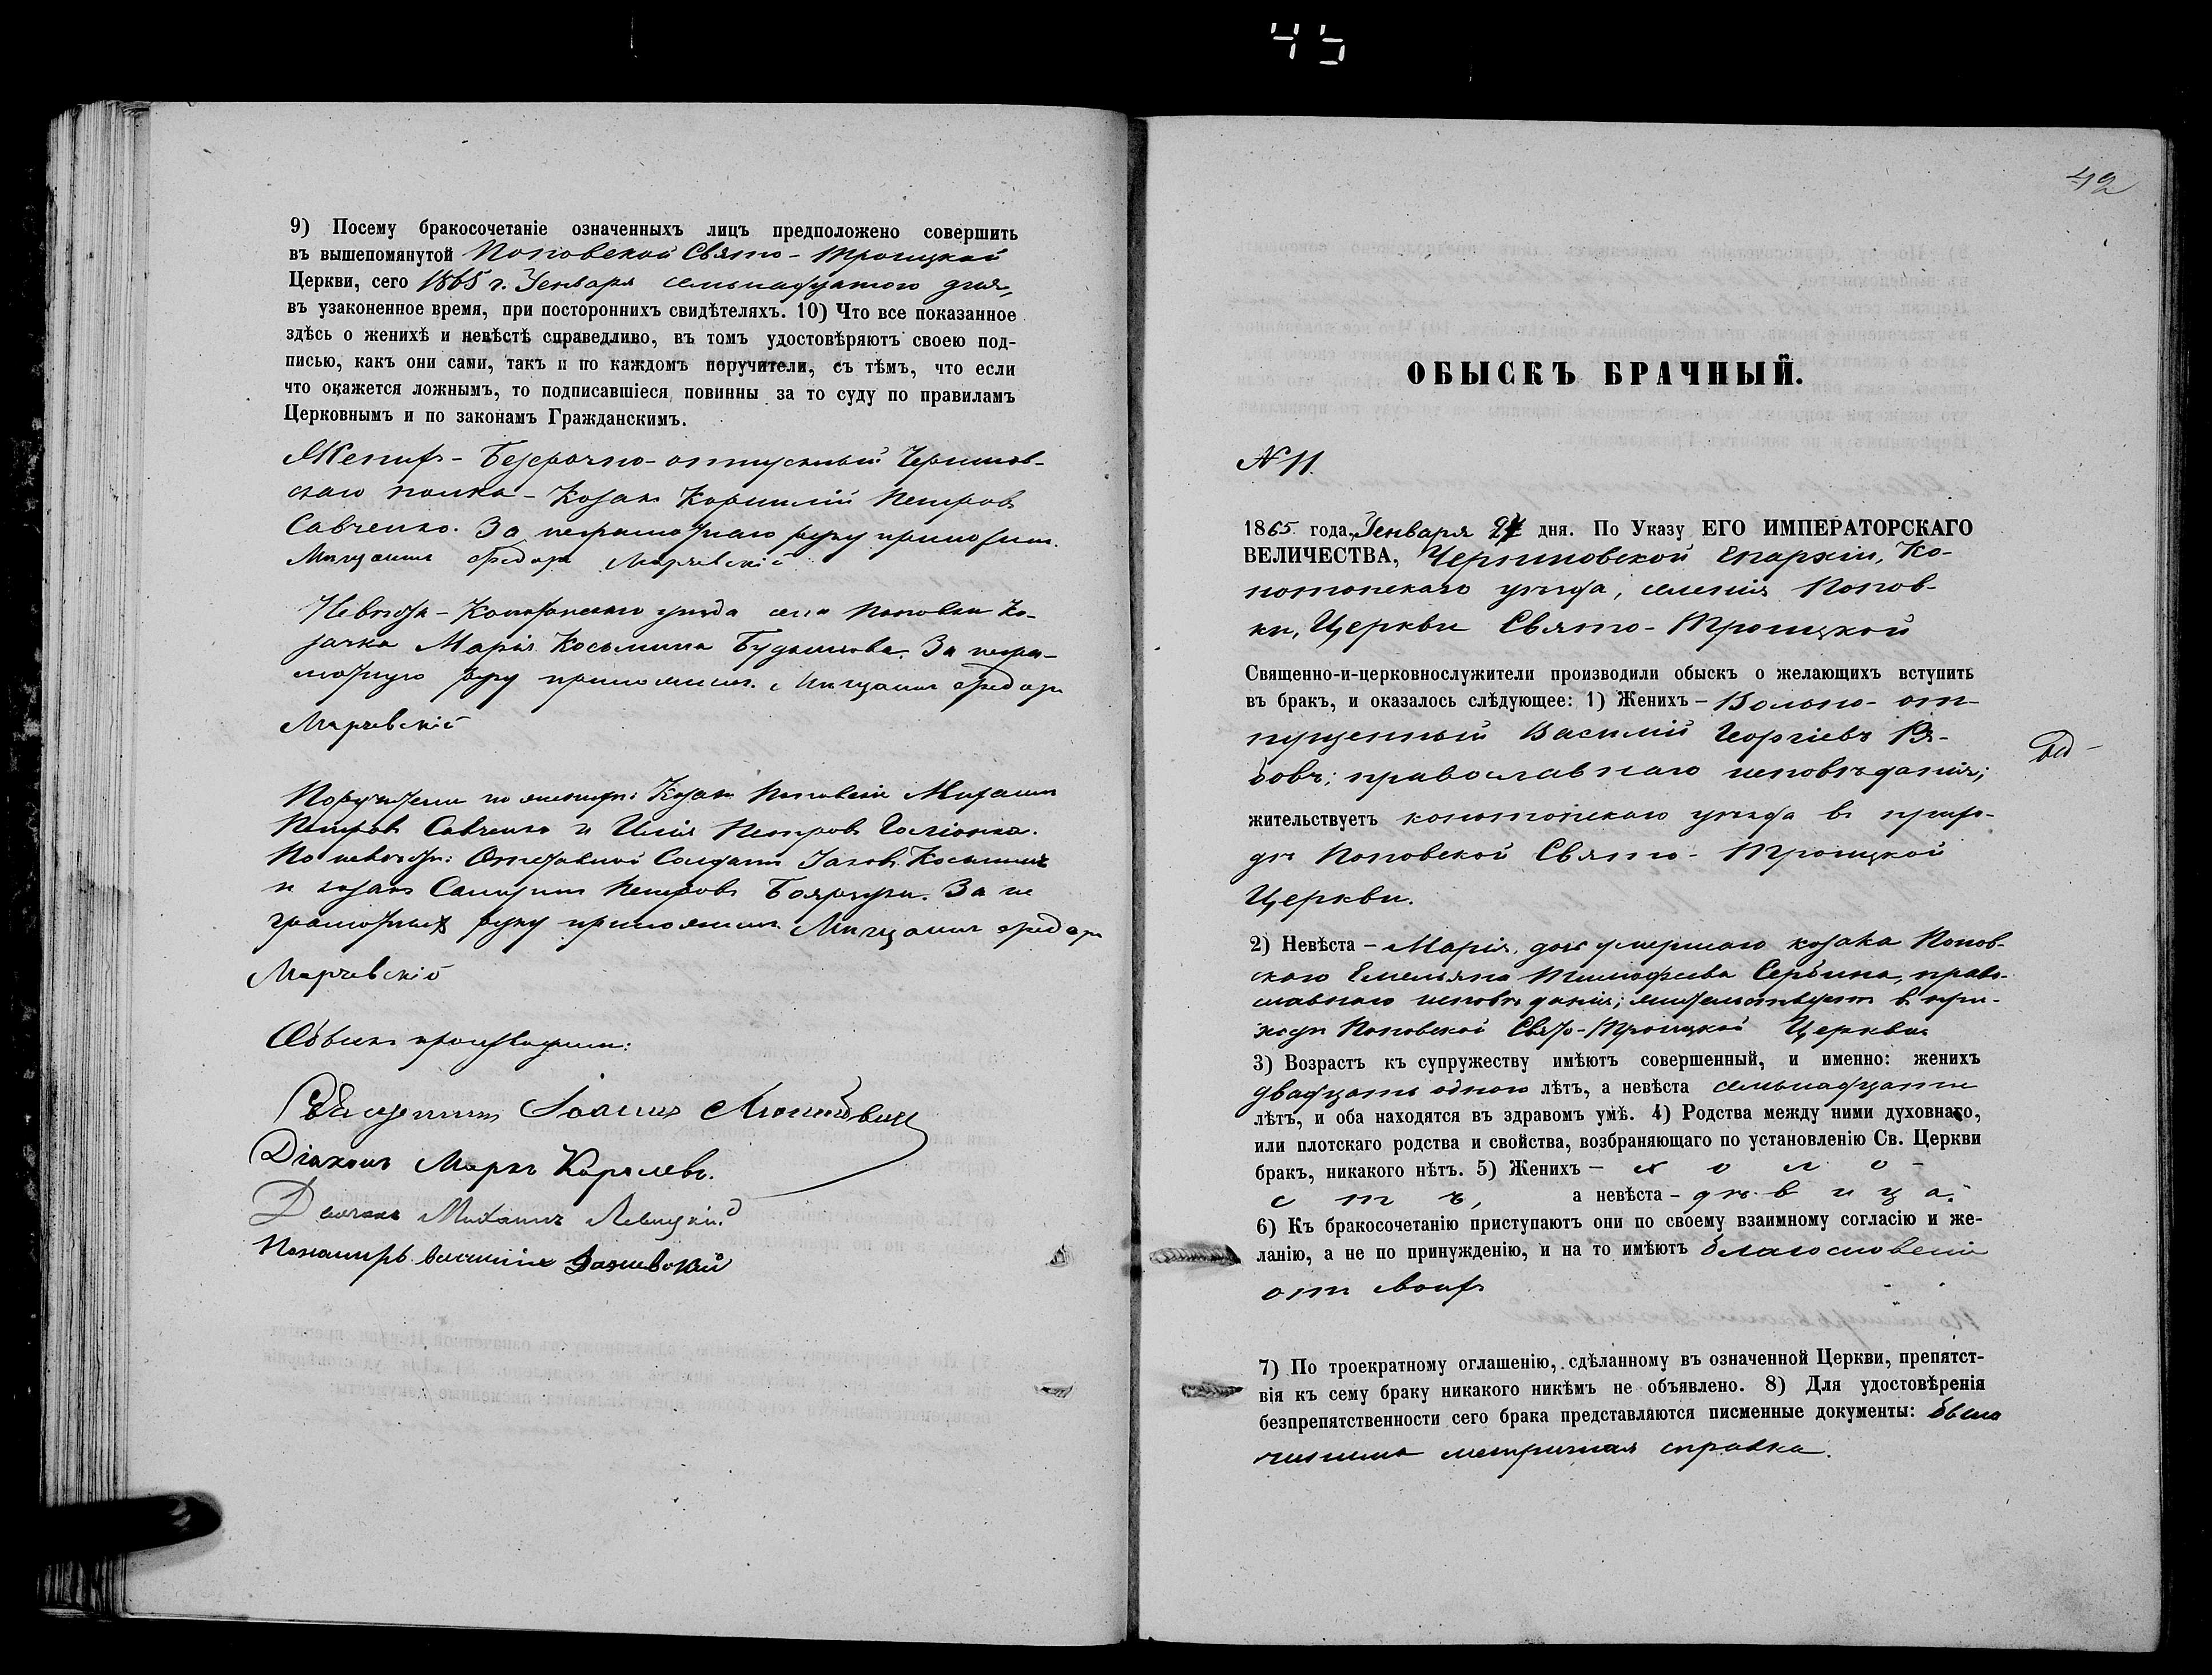 45
9) Посему бракосочетаніе означенныхъ лицъ предположено совершить
въ вышепомянутой Поповской Свято-Троицкой
Церкви, сего 1865 г. Генваря семьнадцатого дня,
въ узаконенное время, при постороннихъ свидѣтеляхъ. 10) Что все показанное
здѣсь о женихѣ и невѣстѣ справедливо, въ томъ удостовѣряютъ своею под-
писью, какъ они сами, такъ и по каждомъ поручители, съ тѣмъ, что если
что окажется ложнымъ, то подписавшіеся повинны за то суду по правиламъ
Церковнымъ и по законамъ Гражданскимъ.
Женихъ - Безсрочно-отпускный Чернигов-
скаго полка - Козакъ Корнилій Петровъ
Савченко. За неграмотнаго руку приложилъ
Мищанинъ Федоръ Марчевскій
Невѣста - Конотопскаго уѣзда села Поповки Ко-
зачка Марія Косьмина За негра-
мотную руку приложилъ Мищанинъ Федоръ
Марчевскій
Поручители по женихѣ: Козаки Поповскіе Михаилъ
Петровъ Савченко и Илія Петровъ
По невѣстѣ: Отставной Солдатъ Іаковъ Косьминъ
и козакъ Петровъ За не
грамотныхъ руку приложилъ Мищанинъ Федоръ
Марчевскій
Обыскъ производили:
Священникъ Іоаннъ
Діаконъ Маркъ Королевъ.
Дьячокъ Михаилъ Левицкій
Пономарь Василій
42
ОБЫСКЪ БРАЧНЫЙ.
N 11.
1865 года, Генваря 27 дня. По Указу ЕГО ИМПЕРАТОРСКАГО
ВЕЛИЧЕСТВА, Черниговской Епархіи, Ко-
нотопскаго уѣзда, селенія Попов-
ки, Церкви Свято-Троицкой
Священно-и-церковнослужители производили обыскъ о желающихъ вступить
въ бракъ, и оказалось слѣдующее: 1) Женихъ - Вольно-от-
пущенный Василій Георгіевъ Ря-
бовъ; православнаго исповѣданія;
жительствуетъ конотопскаго уѣзда въ прихо-
дѣ Поповской Свято-Троицкой
Церкви.
2) Невѣста - Марія, дочь умершаго козака Попов-
скаго Емельяна Тимофеева Сербина, право-
славнаго исповѣданія; жительствуетъ въ при-
ходѣ Поповской Свято-Троицкой Церкви.
3) Возрастъ къ супружеству имѣютъ совершенный, и именно: женихъ
двадцать одного лѣтъ, а невѣста семьнадцати
лѣтъ, и оба находятся въ здравомъ умѣ. 4) Родства между ними духовнаго,
или плотскаго родства и свойства, возбраняющаго по установленію Св. Церкви
бракъ, никакого нѣтъ. 5) Женихъ - холо-
стъ, а невѣста - дѣвица.
6) Къ бракосочетанію приступаютъ они по своему взаимному согласію и же-
ланію, а не по принужденію, и на то имѣютъ благословеніе
отъ
7) По троекратному оглашенію, сдѣланному въ означенной Церкви, препятст-
вія къ сему браку никакого никѣмъ не объявлено. 8) Для удостовѣренія
безпрепятственности сего брака представляются писменные документы: была
чинима метричная справка.